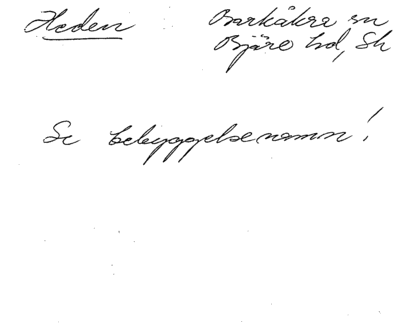 Heden Barkåkra sn
Bjäre hd, Sk
Se bebyggelsenamn!